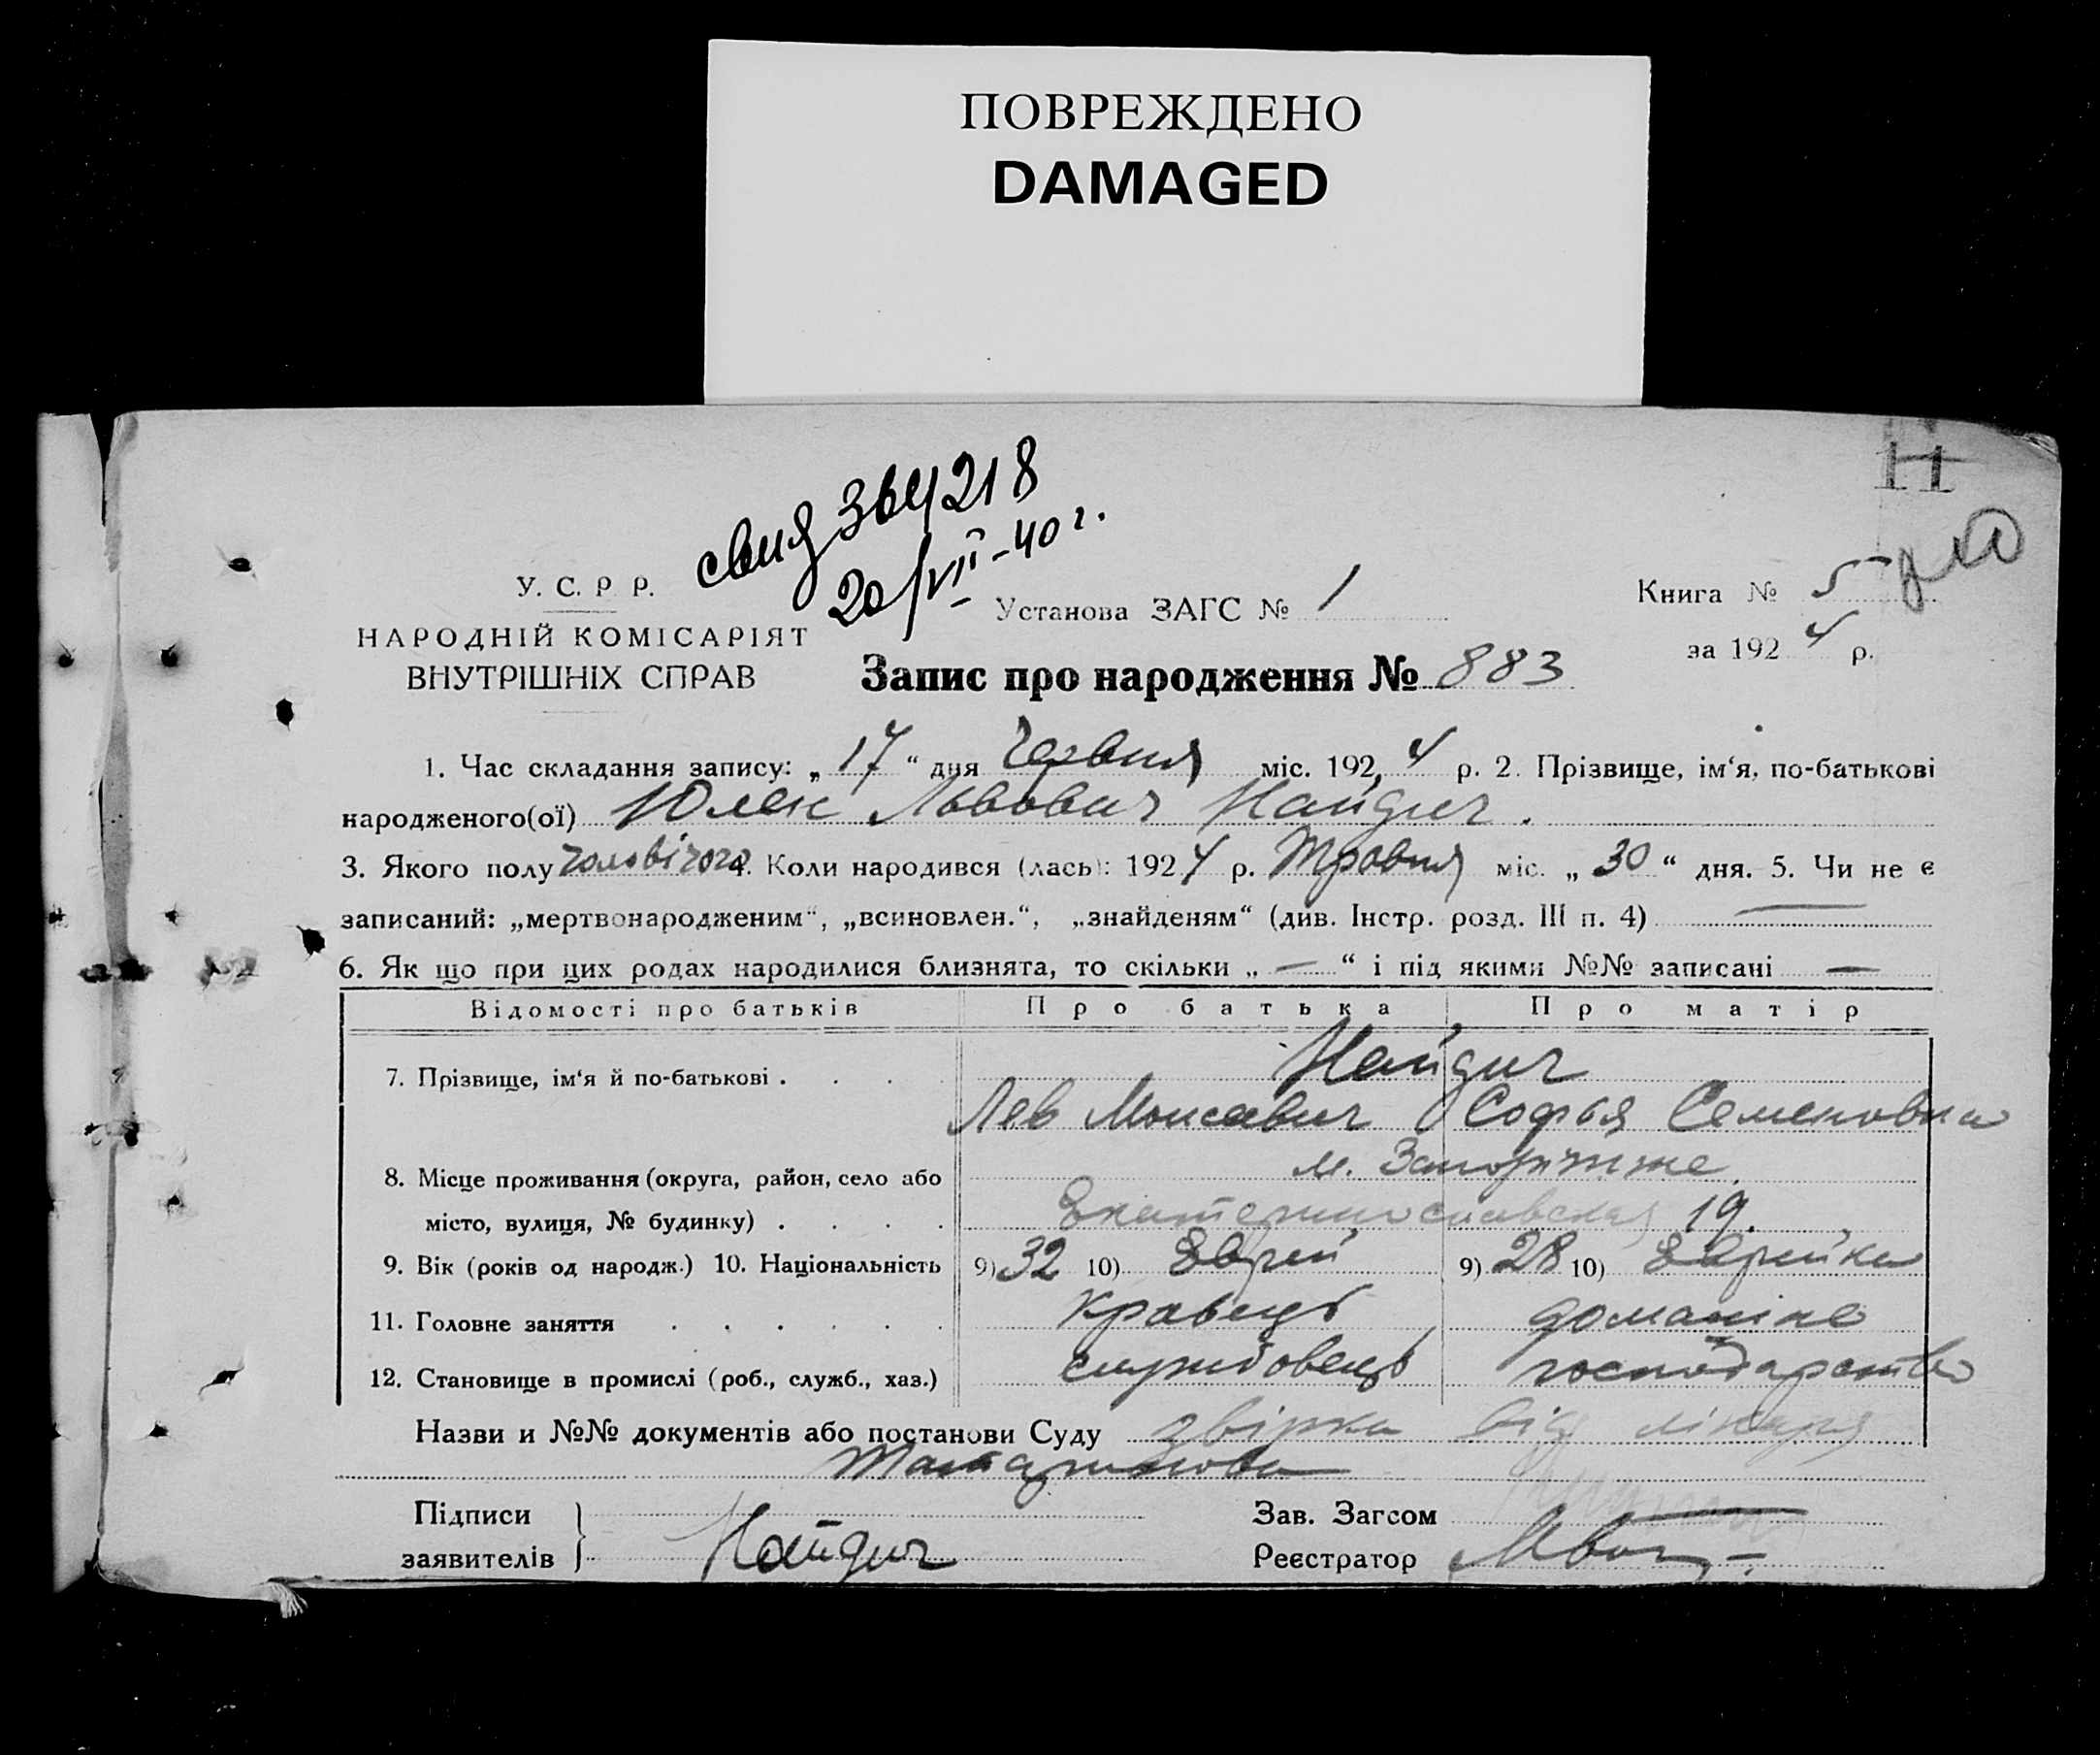 ПОВРЕЖДЕНО
DAMAGED
11
свид 364218
20/VII-40 г.
У. С. Р Р.
Установа ЗАГС № 1
Книга № 5
НАРОДНІЙ КОМІСАРІЯТ
ВНУТРІШНІХ СПРАВ
за 1924 р.
Запис про народження № 883
1. Час складання запису: „17“ дня Червня міс. 1924 р. 2. Прізвище, ім‘я, по-батькові
народженого(ої) Юлек Львович Найдич.
3. Якого полу чоловічого 4. Коли народився (лась): 1924 р. Травня міс. „30“ дня. 5. Чи не є
записаний: „мертвонародженим“, „всиновлен.“, „знайденям“ (див. Інстр. розд. III п. 4) —
6. Як що при цих родах народилися близнята, то скільки „—“ і під якими №№ записані —
Відомості про батьків Про батька Про матір
7. Прізвище, ім‘я й по-батькові . . . . Найдич
Лев Моисеевич Софья Семеновна
8. Місце проживання (округа, район, село або м. Запоріжже
місто, вулиця, № будинку) . . . . Екатеринославская 19.
9. Вік (років од народж.) 10. Національність 9) 32 10) Еврей 9) 28 10) Еврейка
11. Головне заняття . . . . . . Кравець домашнє
12. Становище в промислі (роб., служб., хаз.) службовець господарство
Назви и №№ документів або постанови Суду звірка від лікаря
Підписи
заявителів Найдич
Зав. Загсом
Реєстратор